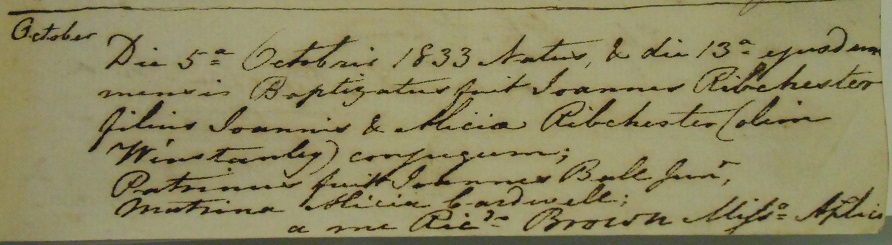 October
Die 5ª Octobris 1833 Natus, & die 13ª ejusdem
mensis Baptizatus fuit Joannes Ribchester
filius Joannis & Alicia Ribchester (olim
Winstanley) conjugum;
Patrinus fuit Joannes Ball Junr,
Matrina Alicia Cardwell;
a me Ricdo Brown Misso Aplico